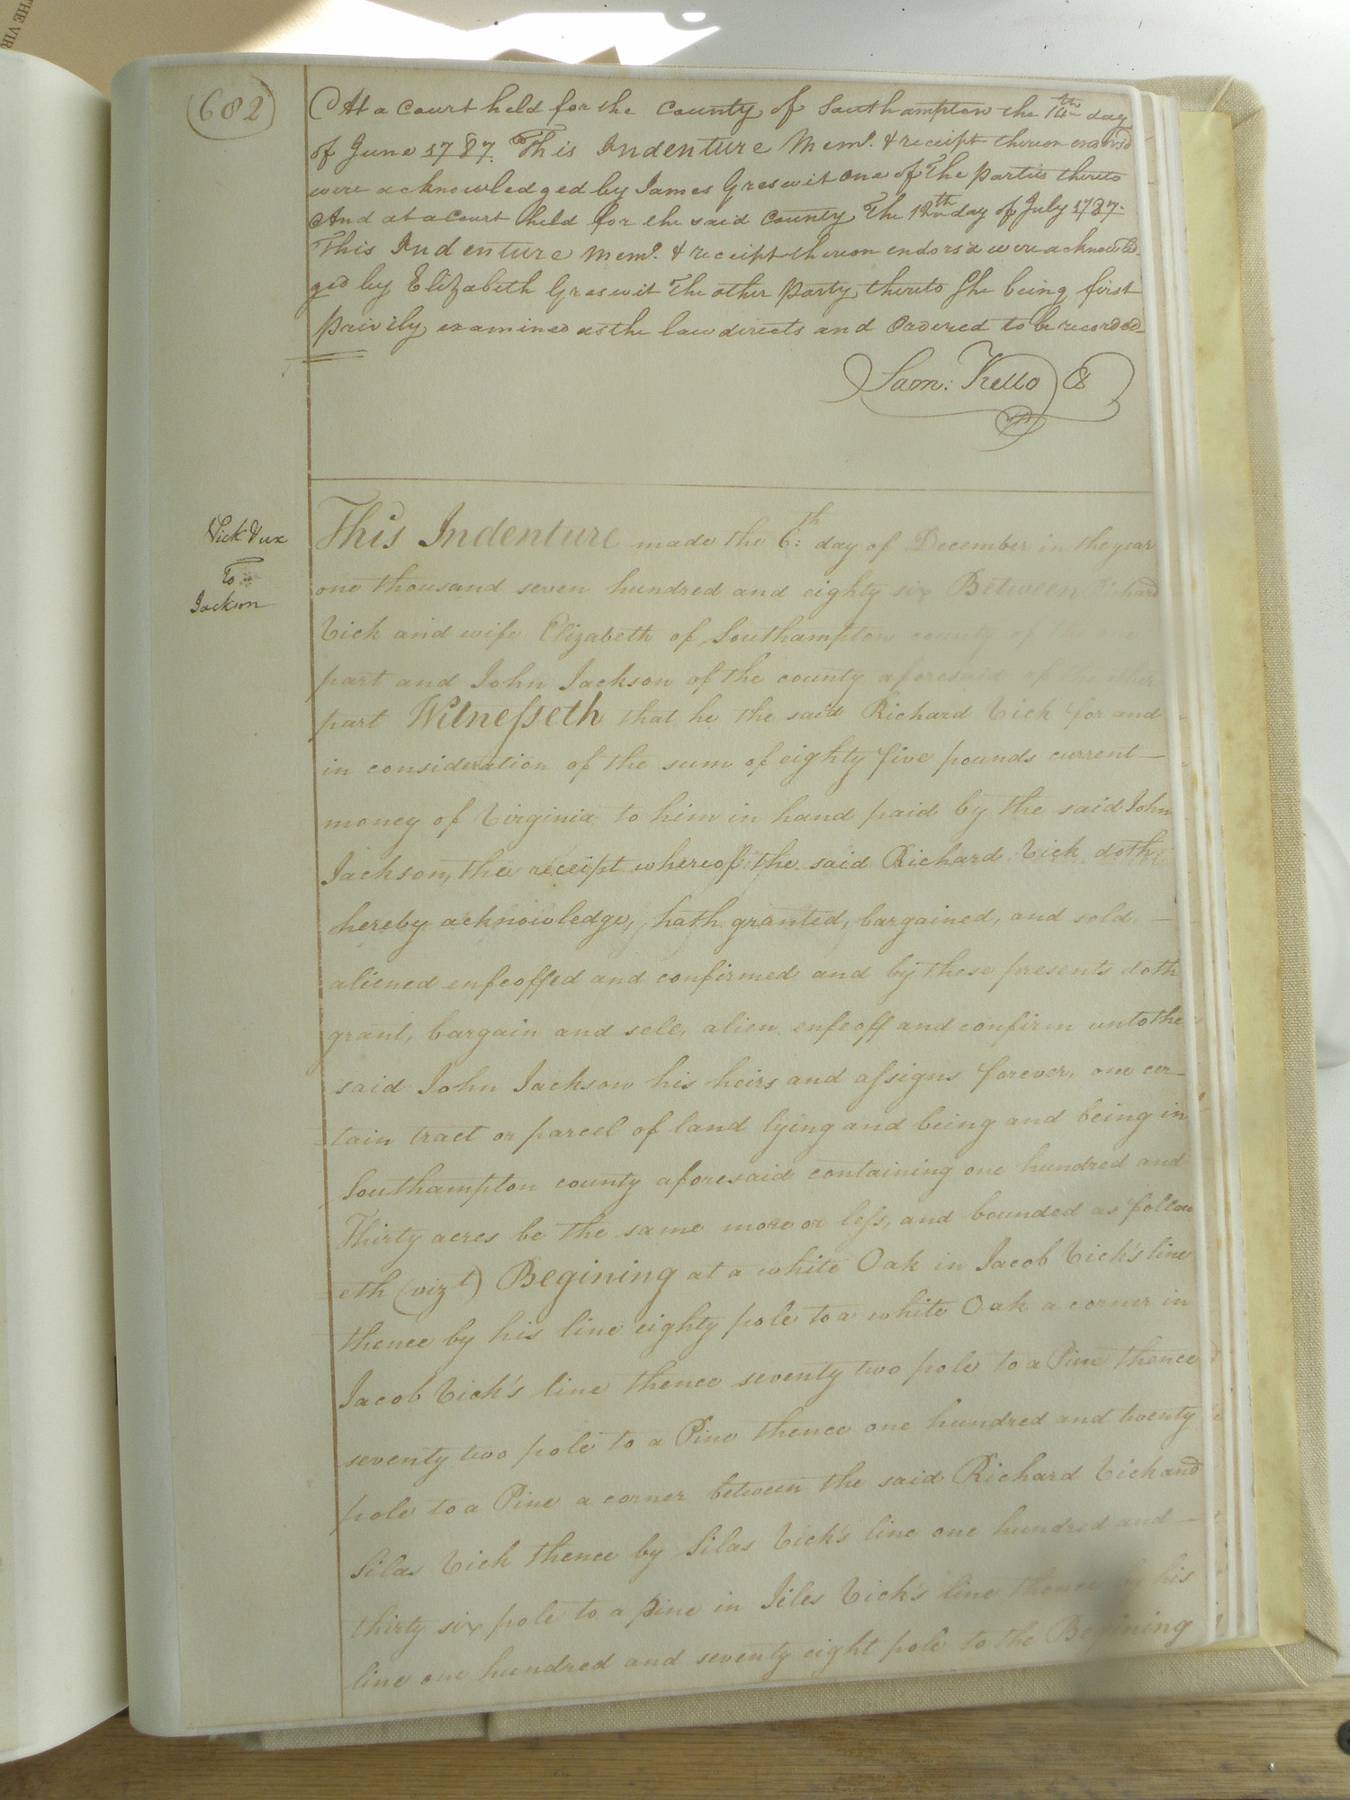 THE VIR
682
At a Court held for the County of Southampton the 14th day
of June 1787. This Indenture Mem.o & receipt thereon endors'd
were acknowledged by James Greswit One of The Parties thereto
And at a Court held for the said County The 12th day of July 1787.
This Indenture Mem.o & receipt thereon endors'd were acknowled-
ged by Elizabeth Greswit The other Party thereto She being first
Privily examined as the law directs and Ordered to be recorded_
Sam: Kello C
Vick & ux
To
Jackson
This Indenture made the 6:th day of December in the year
one thousand seven hundred and eighty six Between Richard
Vick and wife Elizabeth of Southampton county of the one
part and John Jackson of the county aforesaid of the other
part Witnesseth that he the said Richard Vick for and
in consideration of the sum of eighty five pounds current —
money of Virginia to him in hand paid by the said John
Jackson, the receipt whereof the said Richard Vick doth
hereby acknowledge, hath granted, bargained, and sold —
aliened enfeoffed and confirmed and by these presents doth
grant, bargain and sell, alien enfeoff and confirm unto the
said John Jackson his heirs and assigns forever, one cer-
tain tract or parcel of land lying and being and being in
Southampton county aforesaid containing one hundred and
Thirty acres be the same more or less, and bounded as follow
eth (vizt) Begining at a white Oak in Jacob Vick's line
thence by his line eighty pole to a white Oak a corner in
Jacob Vick's line thence seventy two pole to a Pine thence
seventy two pole to a Pine thence one hundred and twenty
pole to a Pine a corner between the said Richard Vick and
Silas Vick thence by Silas Vick's line one hundred and —
thirty six pole to a pine in Jiles Vick's line thence by his
line one hundred and seventy eight pole to the Begining